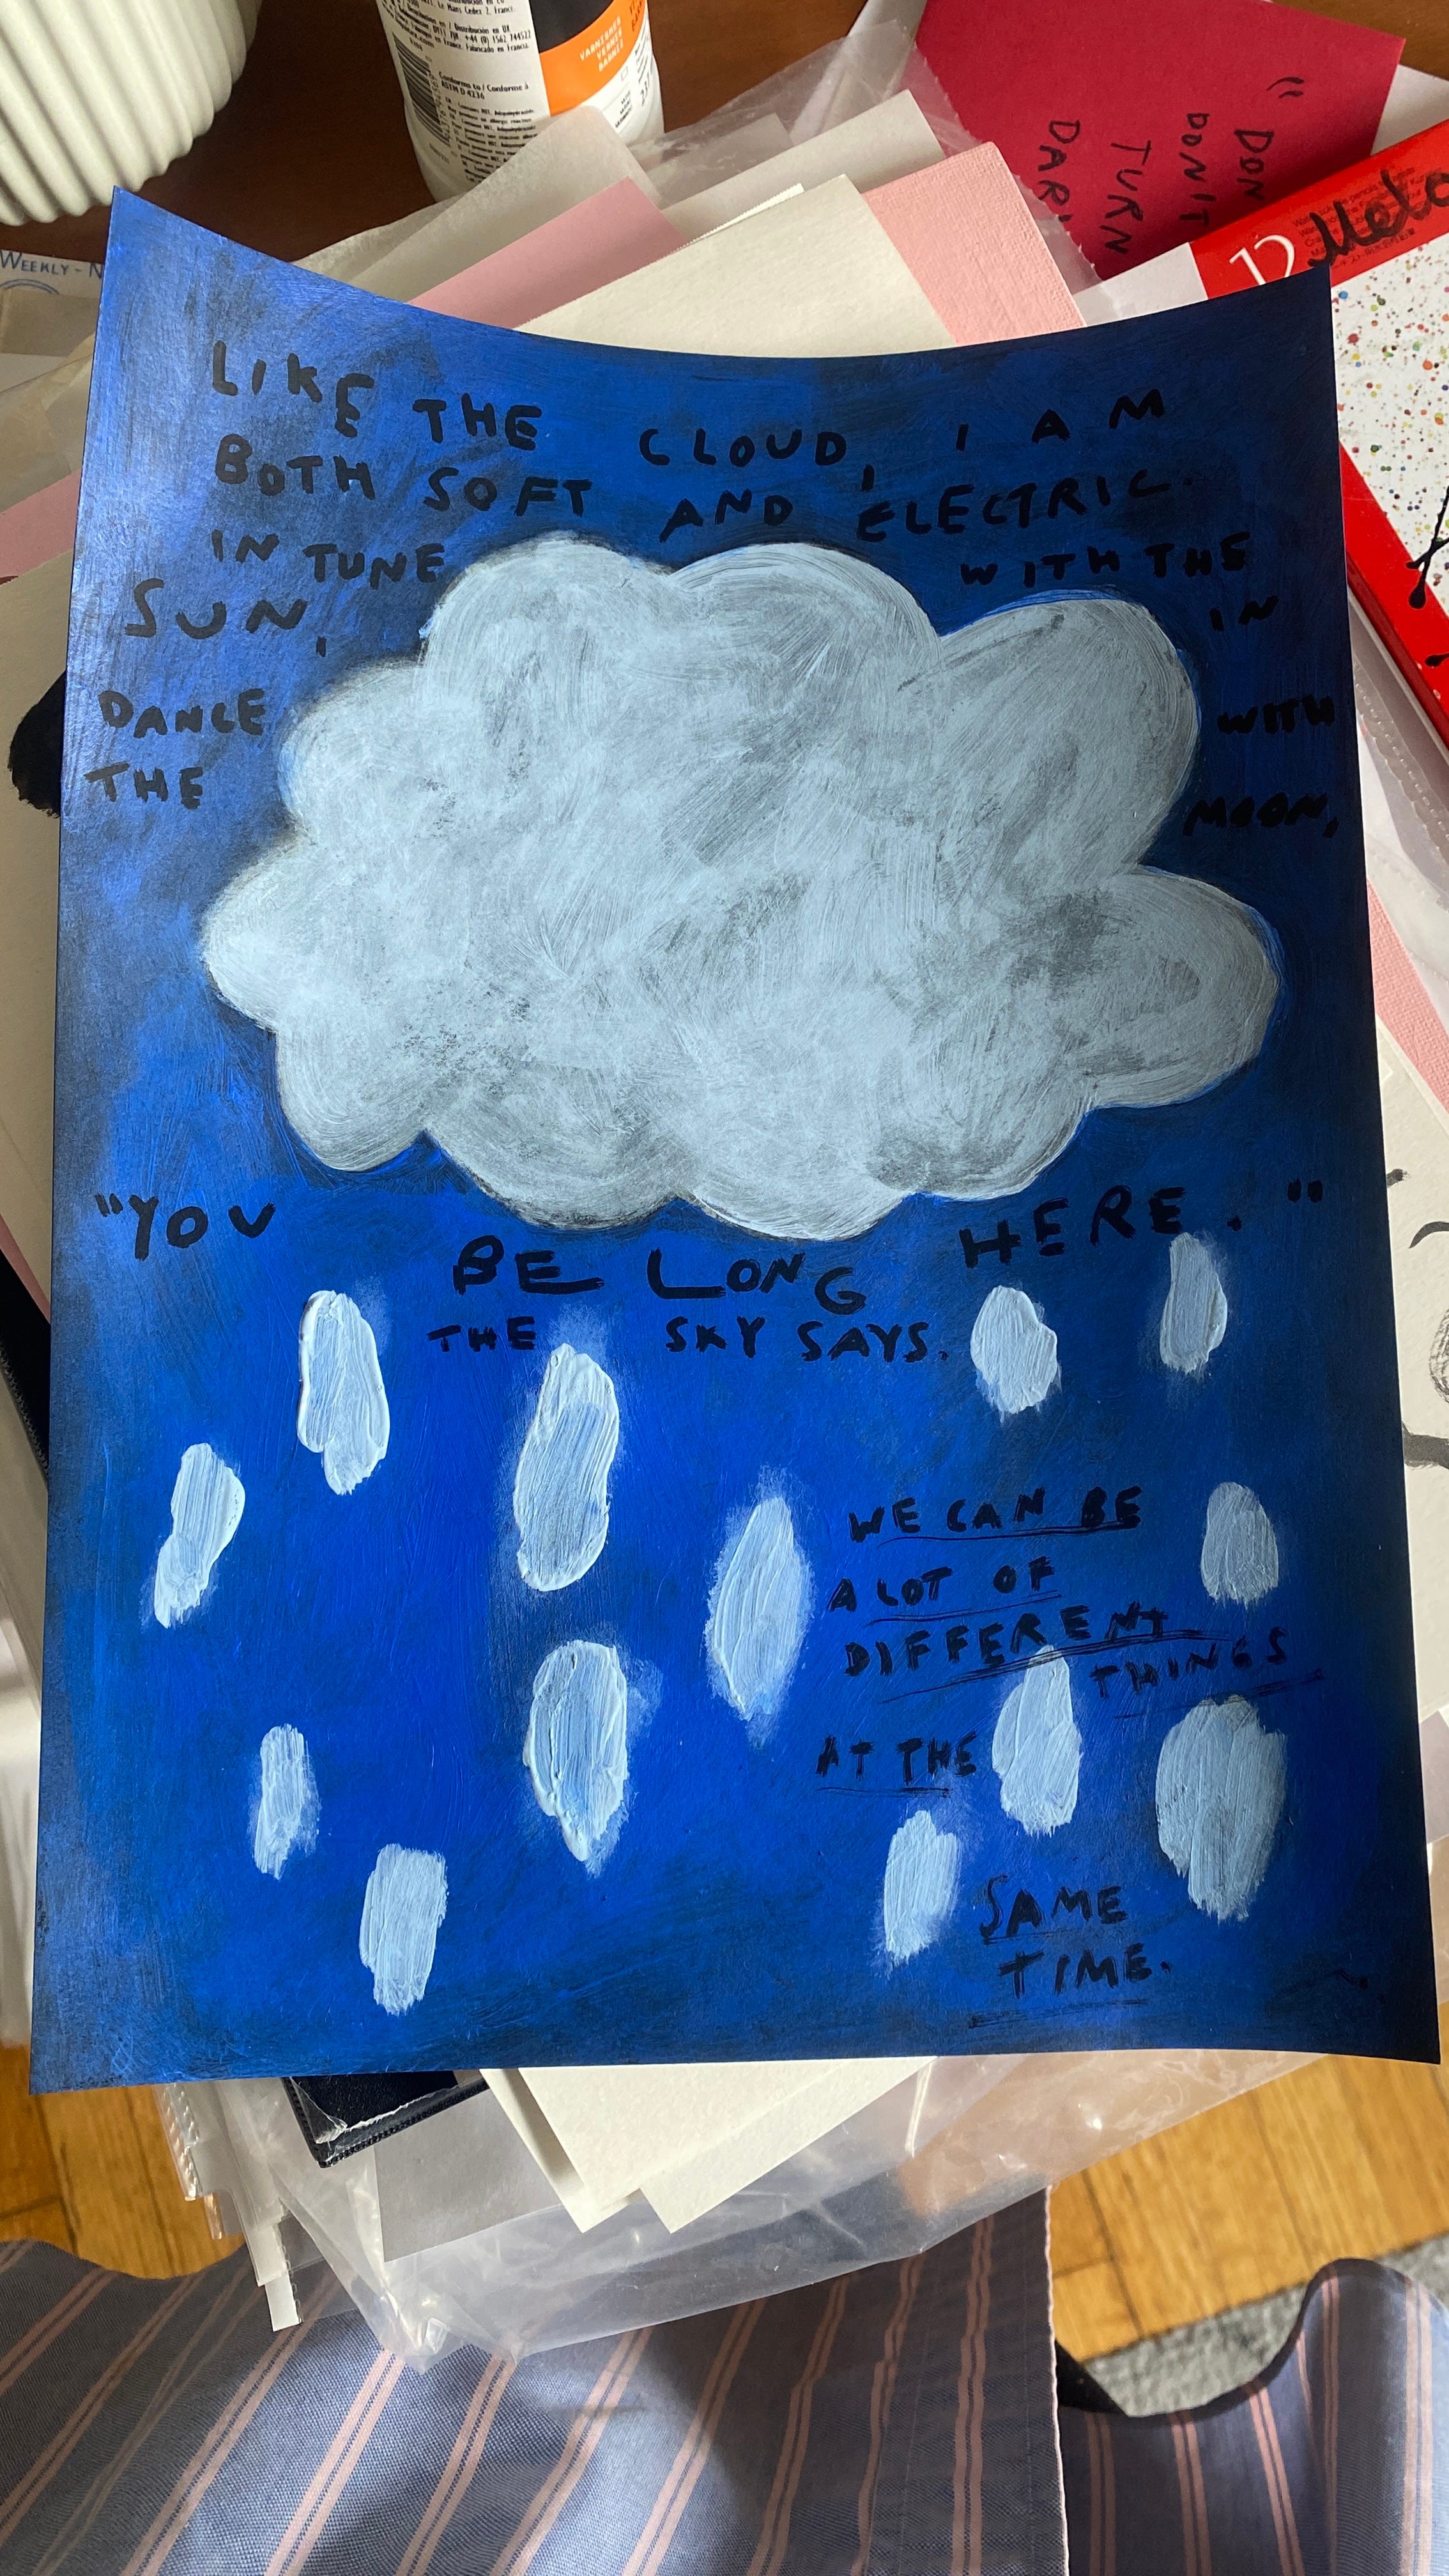 LIKE THE CLOUD, I AM
BOTH SOFT AND ELECTRIC.
IN TUNE WITH THE
SUN, IN
DANCE WITH
THE MOON,
"YOU BE LONG HERE."
THE SKY SAYS.
WE CAN BE
A LOT OF
DIFFERENT
THINGS
AT THE
SAME
TIME.
"DON
DON'T
TURN
12
WEEKLY - N
VARNISHES
VERNIS
BARNIZ
Conforms to / Conforme à
ASTM D 4236